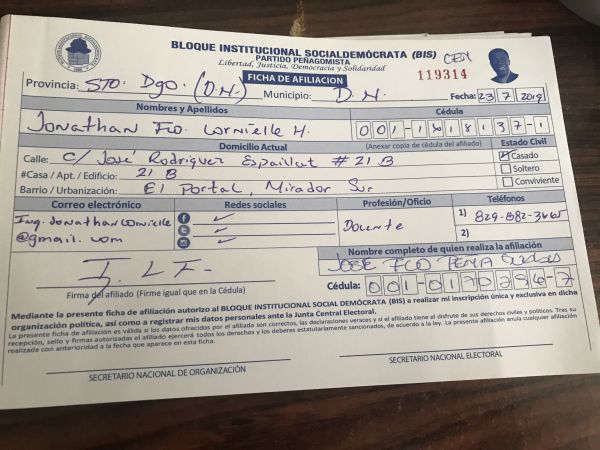 BLOQUE INSTITUCIONAL SOCIALDEMÓCRATA (BIS) CEN
PARTIDO PEÑAGOMISTA
Libertad, Justicia, Democracia y Solidaridad
119314
FICHA DE AFILIACION
Provincia: STO. Dgo. (D.N.) Municipio: D.N. Fecha: 23 7 2019
Nombres y Apellidos Cédula
Jonathan Fco. Cornielle H. 001-1818137-1
Domicilio Actual (Anexar copia de cédula del afiliado) Estado Civil
Calle: C/ José Rodriguez Espaillat # 21 B Casado
#Casa / Apt. / Edificio: 21 B Soltero
Barrio / Urbanización: El Portal, Mirador Sur Conviviente
Correo electrónico Redes sociales Profesión/Oficio Teléfonos
Ing.Jonathan Cornielle Docente 1) 829-882-3465
@gmail.com 2)
Nombre completo de quien realiza la afiliación
JOSE FCO PEÑA
Cédula: 001-0170294-7
Firma del afiliado (Firme igual que en la Cédula)
Mediante la presente ficha de afiliación autorizo al BLOQUE INSTITUCIONAL SOCIAL DEMÓCRATA (BIS) a realizar mi inscripción única y exclusiva en dicha
organización política, así como a registrar mis datos personales ante la Junta Central Electoral.
La presente ficha de afiliación es válida si los datos ofrecidos por el afiliado son correctos, las declaraciones veraces y si el afiliado tiene el disfrute de sus derechos civiles y políticos. Tras su
recepción, sello y firmas autorizadas el afiliado ejercerá todos los derechos y los deberes estatutariamente sancionados, de acuerdo a la ley. La presente afiliación anula cualquier afiliación
realizada con anterioridad a la fecha que aparece en esta ficha.
SECRETARIO NACIONAL DE ORGANIZACIÓN SECRETARIO NACIONAL ELECTORAL